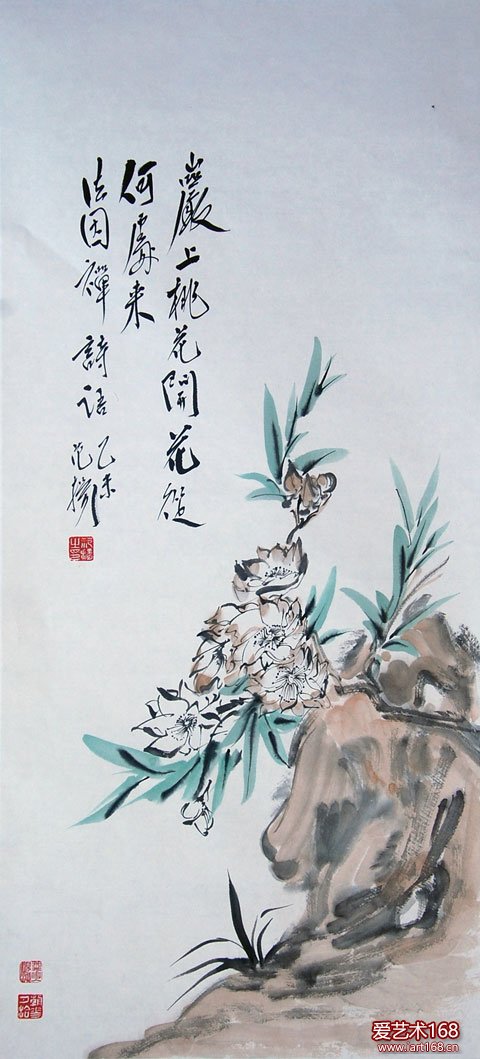 巖上桃花開花從
何處来
法因禪詩语
乙未
爱艺术168
www.iart168.cn